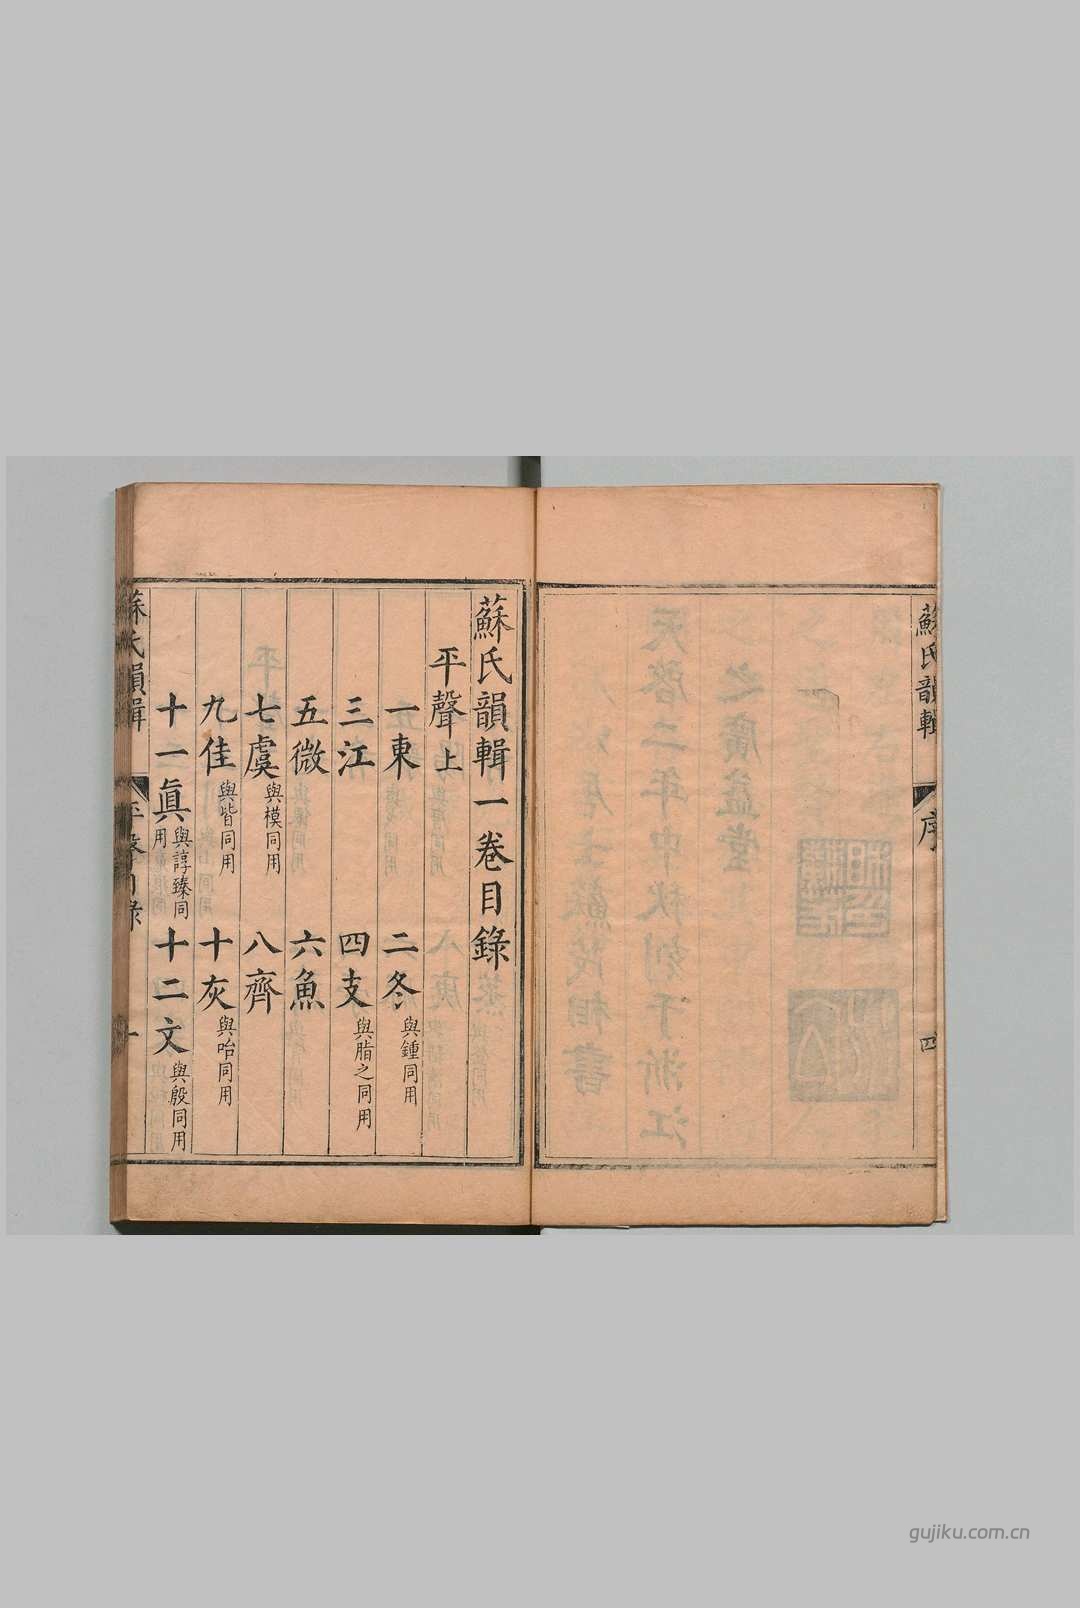 蘇氏韻輯
序
四
蘇氏韻輯一卷目錄
平聲上
一東
二冬 與鍾同用
三江
四支 與脂之同用
五微
六魚
七虞 與模同用
八齊
九佳 與皆同用
十灰 與咍同用
十一眞 與諄臻同用
十二文 與殷同用
蘇氏韻輯
平聲目錄
一
gujiku.com.cn